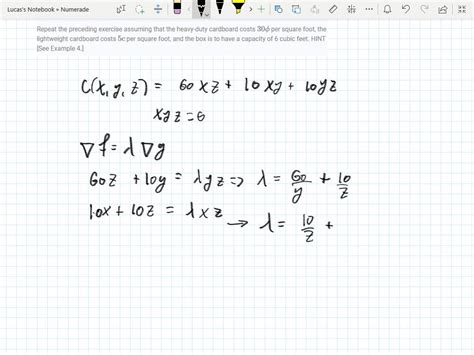 Lucas's Notebook » Numerade
Repeat the preceding exercise assuming that the heavy-duty cardboard costs 30¢ per square foot, the
lightweight cardboard costs 5¢ per square foot, and the box is to have a capacity of 6 cubic feet. HINT
[See Example 4.]
C(x, y, z) = 60xz + 10xy + 10yz
xyz = 6
∇f = λ∇g
60z + 10y = λyz => λ = 60/y + 10/z
10x + 10z = λxz
→ λ = 10/z +